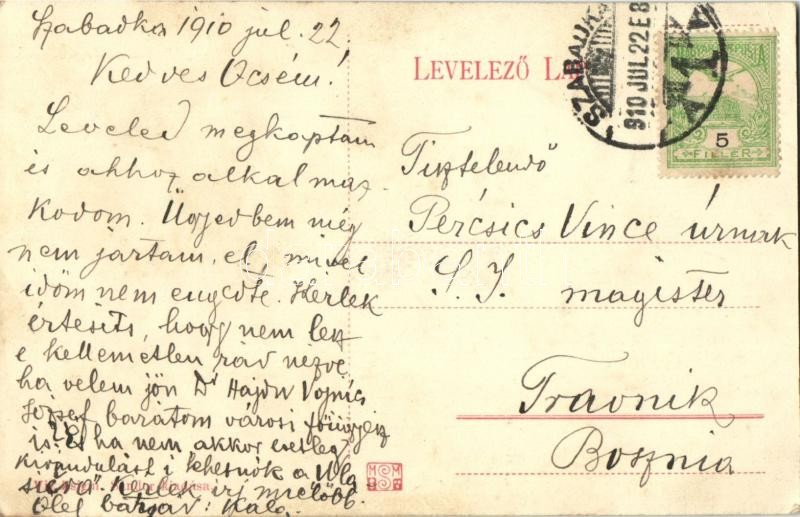 Szabadka 1910 júl. 22.
Kedves Öcsém!
Leveled megkaptam
és ahhoz alkalmaz-
kodom. Ügyedbem még
nem jártam el, mivel
időm nem engedte. Kérlek
értesíts, hogy nem lesz
e kellemetlen rád nézve
ha velem jön Dr Hajdu Vojnić
József barátom városi
is. És ha nem akkor esetleg
kirándulást is tehetnők a Vla
Kérlek írj mielőbb.
Ölel bátyád:
LEVELEZŐ LA
SZABADKA
910 JUL. 22 E 8
MAGYAR KIR. POSTA
5
FILLÉR
Tisztelendő
Percsics Vince úrnak
S. J. magister
Travnik
Bosznia
kiadása.
MSM